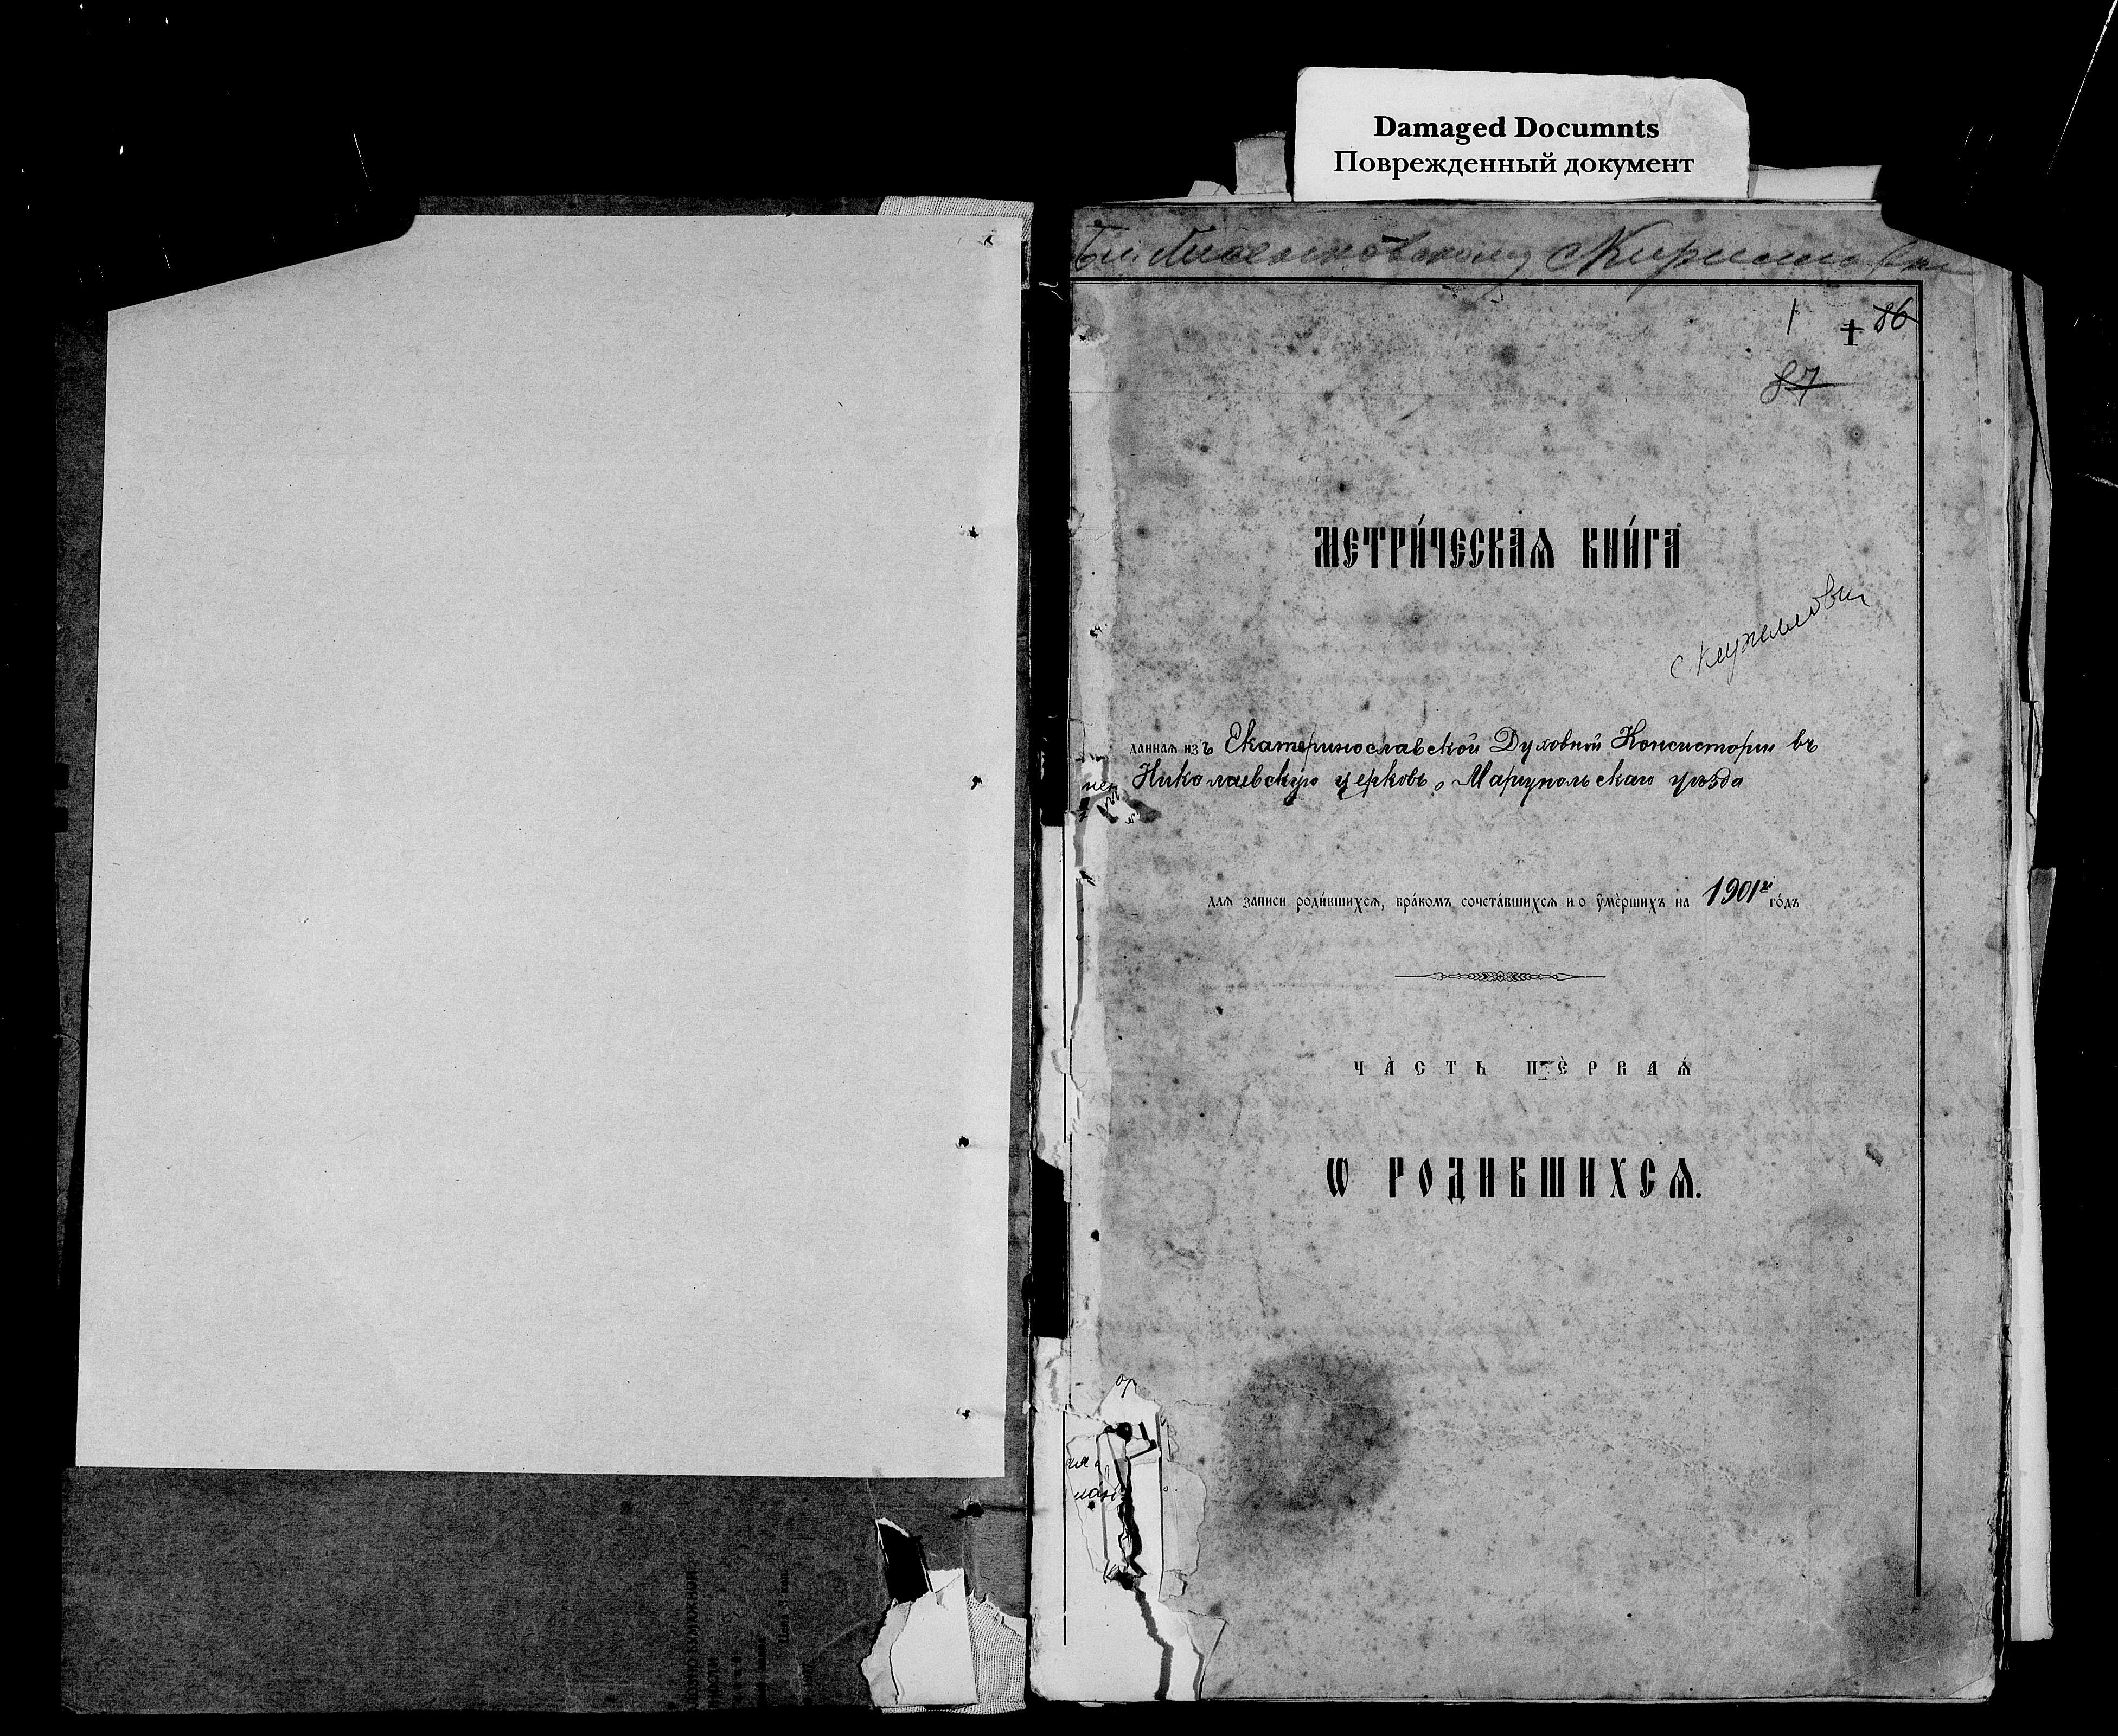 Damaged Documnts
Поврежденный документ
1 † 86
87
МЕТРИ́ЧЕСКАѦ КНИ́ГА
даннаѧ изъ Екатеринославской Духовной Консисторіи въ
Николаевскую церковь, Маріупольскаго уѣзда
длѧ записи роди́вшихсѧ, бра́комъ сочета́вшихсѧ и о ᲂу҆ме́ршихъ на 1901й го́дъ
ЧА́СТЬ ПЕ́РВАѦ
Ѡ РОДИВШИХСѦ.